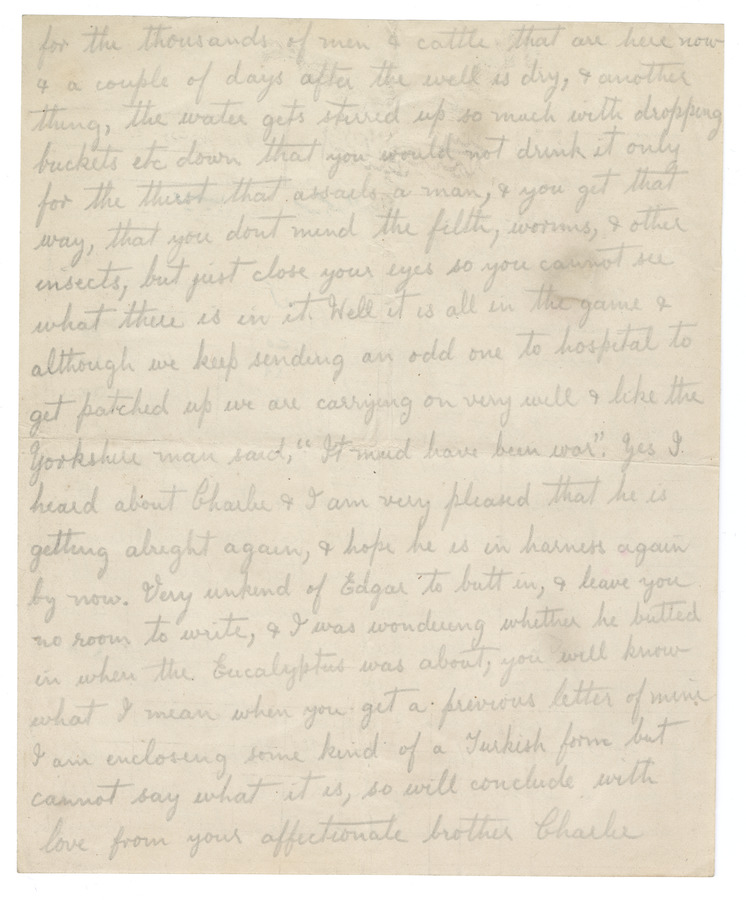 for the thousands of men & cattle that are here now
& a couple of days after the well is dry, & another
thing, the water gets stirred up so much with dropping
buckets etc down that you would not drink it only
for the thirst that assails a man, & you get that
way, that you dont mind the filth, worms, & other
insects, but just close your eyes so you cannot see
what there is in it. Well it is all in the game &
although we keep sending an odd one to hospital to
get patched up we are carrying on very well & like the
Yorkshire man said, "It mud have been war". Yes I
heard about Charlie & I am very pleased that he is
getting alright again, & hope he is in harness again
by now. Very unkind of Edgar to butt in, & leave you
no room to write, & I was wondering whether he butted
in when the Eucalyptus was about, you will know
what I mean when you get a previous letter of mine.
I am enclosing some kind of a Turkish form but
cannot say what it is, so will conclude with
love from your affectionate brother Charlie